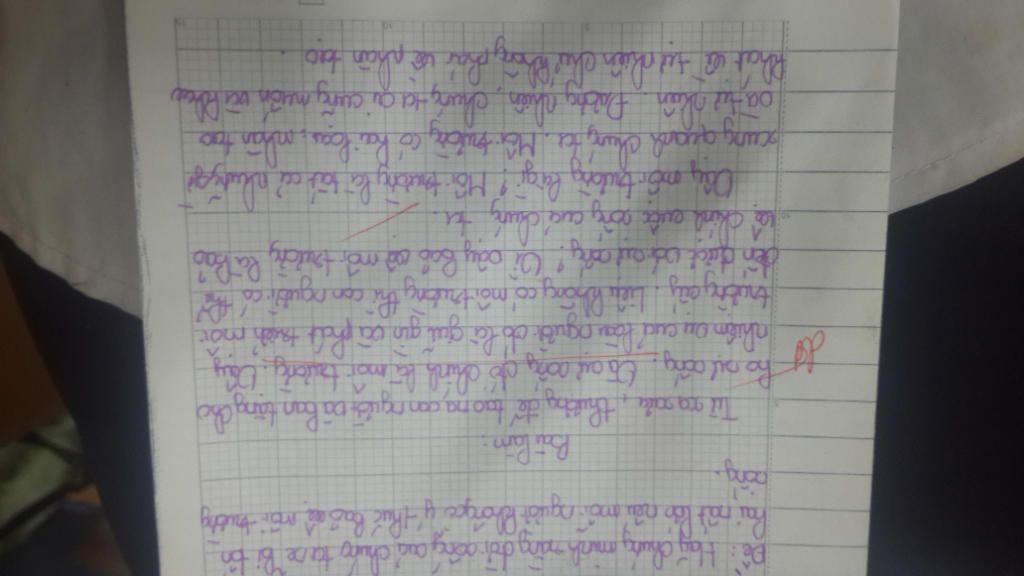 Đề: Hãy chứng minh rằng đời sống của chúng ta sẽ bị tổn
hại rất lớn nếu mỗi người không có ý thức bảo vệ môi trường
sống.
Bài làm:
Từ xa xưa, thượng đế tạo ra con người và ban tặng cho
họ sự sống. Và sự sống đó chính là môi trường. Vậy
nhiệm vụ của loài người đó là giữ gìn và phát triển môi
trường ấy. Liệu không có môi trường thì con người có thể
đến được với sự sống? Vì vậy bảo vệ môi trường là bảo
vệ chính cuộc sống của chúng ta.
Vậy môi trường là gì? Môi trường là tất cả những gì
xung quanh chúng ta. Môi trường có hai loại: nhân tạo
và tự nhiên. Đương nhiên, chúng ta ai cũng muốn
tự nhiên chứ không phải về nhân tạo.